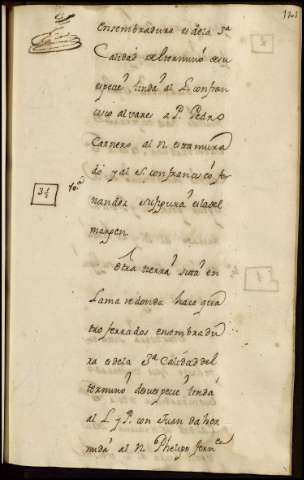 ensembradura es dela 3ª
Calidad del termino desu
especie linda al L. con fran
cisco alvares a P. Pedro
Carnero al N. esta mura
do y al S. con francisco fer
nandez su figura es la del
margen
Otra tierra sita en
Lama redonda hace qua
tro ferrados ensembradu
ra es dela 3ª Calidad del
termino desu especie linda
al L y P. con Juan da her
mida al N Phelipe fern